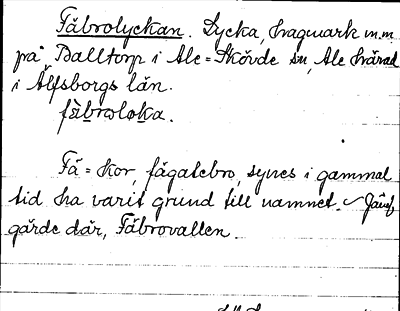 Fäbrolyckan. Lycka, hagmark m.m.
på Balltorp i Ale=Skövde sn, Ale härad
i Älfsborgs län.
fä̀broloka.
Fä=kor, fägatebro, synes i gammal
tid ha varit grund till namnet. Jämf.
gärde där, Fäbrovallen.